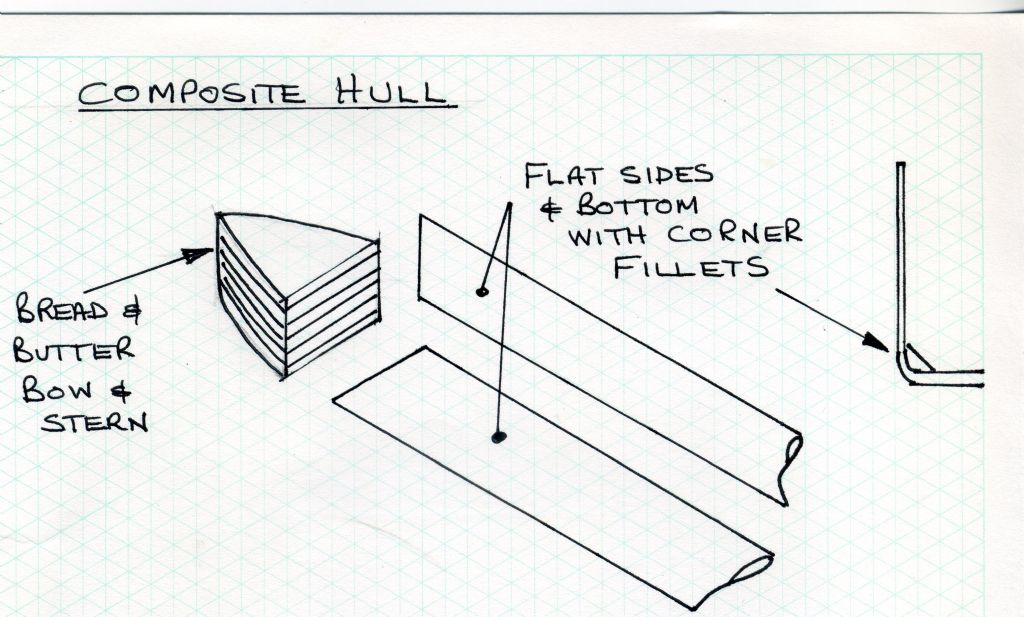 COMPOSITE HULL
FLAT SIDES
& BOTTOM
WITH CORNER
FILLETS
BREAD &
BUTTER
BOW &
STERN